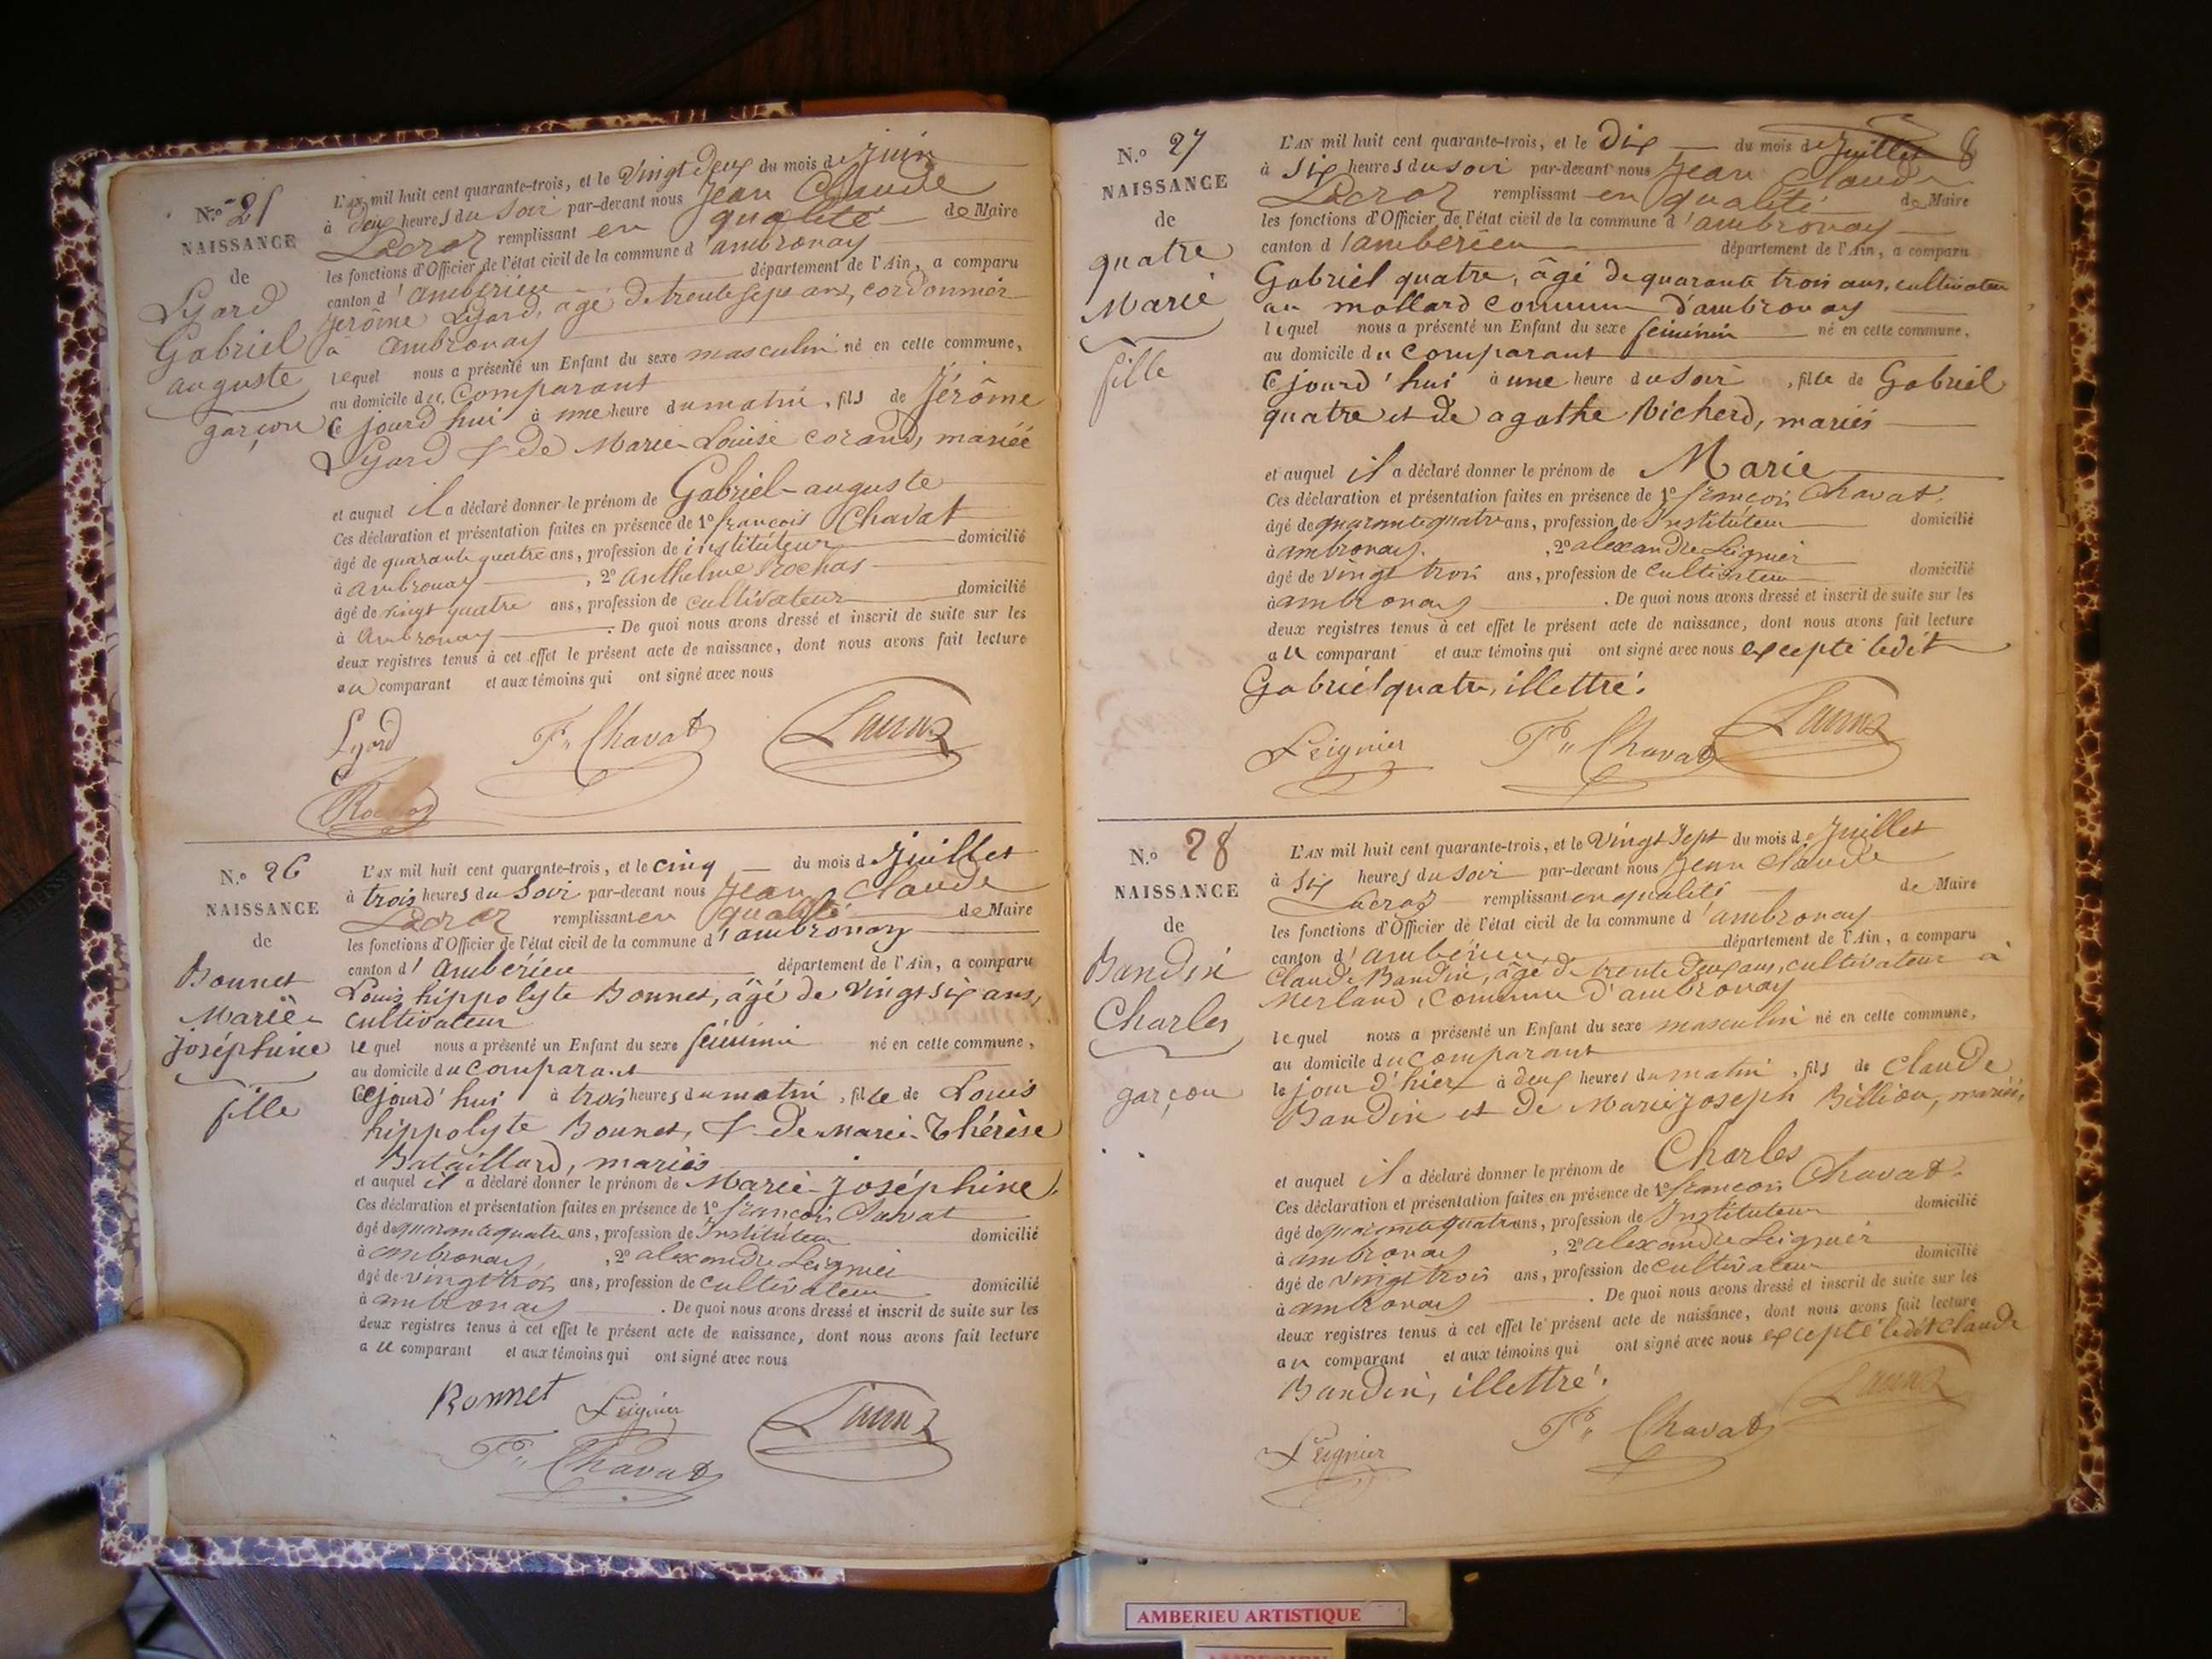 N.o 25
NAISSANCE
de
Lyard
Gabriel
auguste
garçon
L'AN mil huit cent quarante-trois, et le Vingt deux du mois de Juin
à deux heures du Soir par-devant nous Jean Claude
Lacroz remplissant en qualité de Maire
les fonctions d'Officier de l'état civil de la commune d'ambronay
canton d'ambérieu département de l'Ain, a comparu
Jérôme Lyard, âgé de trente sept ans, cordonnier
à ambronay
lequel nous a présenté un Enfant du sexe masculin né en cette commune,
au domicile du Comparant
Ce jourd'hui à une heure du matin, fils de Jérôme
Lyard & de Marie Louise corand, mariés
et auquel il a déclaré donner le prénom de Gabriel-auguste
Ces déclaration et présentation faites en présence de 1o françois Chavat
âgé de quarante quatre ans, profession de instituteur domicilié
à ambronay, 2o anthelme Rochas
âgé de vingt quatre ans, profession de cultivateur domicilié
à Ambronay. De quoi nous avons dressé et inscrit de suite sur les
deux registres tenus à cet effet le présent acte de naissance, dont nous avons fait lecture
au comparant et aux témoins qui ont signé avec nous
Lyard Fs Chavat Lacroz
Rochas
N.o 26
NAISSANCE
de
Bonnet
Marie-
joséphine
fille
L'AN mil huit cent quarante-trois, et le cinq du mois de Juillet
à trois heures du Soir par-devant nous Jean Claude
Lacroz remplissant en qualité de Maire
les fonctions d'Officier de l'état civil de la commune d'ambronay
canton d'ambérieu département de l'Ain, a comparu
Louis hippolyte Bonnet, âgé de Vingt Six ans,
cultivateur
lequel nous a présenté un Enfant du sexe féminin né en cette commune,
au domicile du Comparant
Ce jourd'hui à trois heures du matin, fille de Louis
hippolyte Bonnet, & de Marie-Thérèse
Bataillard, mariés
et auquel il a déclaré donner le prénom de Marie-Joséphine.
Ces déclaration et présentation faites en présence de 1o françois Chavat
âgé de quarante quatre ans, profession de Instituteur domicilié
à ambronay, 2o alexandre Leignier
âgé de vingt trois ans, profession de cultivateur domicilié
à ambronay. De quoi nous avons dressé et inscrit de suite sur les
deux registres tenus à cet effet le présent acte de naissance, dont nous avons fait lecture
au comparant et aux témoins qui ont signé avec nous
Bonnet Leignier Lacroz
Fs Chavat
8
N.o 27
NAISSANCE
de
quatre
Marie
fille
L'AN mil huit cent quarante-trois, et le Dix du mois de Juillet
à Six heures du soir par-devant nous Jean Claude
Lacroz remplissant en qualité de Maire
les fonctions d'Officier de l'état civil de la commune d'ambronay
canton d'ambérieu département de l'Ain, a comparu
Gabriel quatre, âgé de quarante trois ans, cultivateur
au mollard commune d'ambronay
lequel nous a présenté un Enfant du sexe féminin né en cette commune,
au domicile du Comparant
Ce jourd'hui à une heure du Soir, fille de Gabriel
quatre et de agathe Richerd, mariés
et auquel il a déclaré donner le prénom de Marie
Ces déclaration et présentation faites en présence de 1o françois Chavat.
âgé de quarante quatre ans, profession de Instituteur domicilié
à ambronay, 2o alexandre Leignier
âgé de vingt trois ans, profession de cultivateur domicilié
à ambronay. De quoi nous avons dressé et inscrit de suite sur les
deux registres tenus à cet effet le présent acte de naissance, dont nous avons fait lecture
au comparant et aux témoins qui ont signé avec nous excepté ledit
Gabriel quatre, illettré.
Leignier Fs Chavat Lacroz
N.o 28
NAISSANCE
de
Baudin
Charles
garçon
L'AN mil huit cent quarante-trois, et le Vingt Sept du mois de Juillet
à Six heures du soir par-devant nous Jean Claude
Lacroz remplissant en qualité de Maire
les fonctions d'Officier de l'état civil de la commune d'ambronay
canton d'ambérieu département de l'Ain, a comparu
Claude Baudin, âgé de trente deux ans, cultivateur à
Merland, Commune d'ambronay
lequel nous a présenté un Enfant du sexe masculin né en cette commune,
au domicile du comparant
le jour d'hier à deux heures du matin, fils de Claude
Baudin et de Marie joseph Billion, mariés,
et auquel il a déclaré donner le prénom de Charles
Ces déclaration et présentation faites en présence de 1o françois Chavat.
âgé de quarante quatre ans, profession de Instituteur domicilié
à ambronay, 2o alexandre Leignier
âgé de vingt trois ans, profession de cultivateur domicilié
à ambronay. De quoi nous avons dressé et inscrit de suite sur les
deux registres tenus à cet effet le présent acte de naissance, dont nous avons fait lecture
au comparant et aux témoins qui ont signé avec nous excepté ledit Claude
Baudin, illettré.
Leignier Fs Chavat Lacroz
AMBERIEU ARTISTIQUE
AMBERIEU